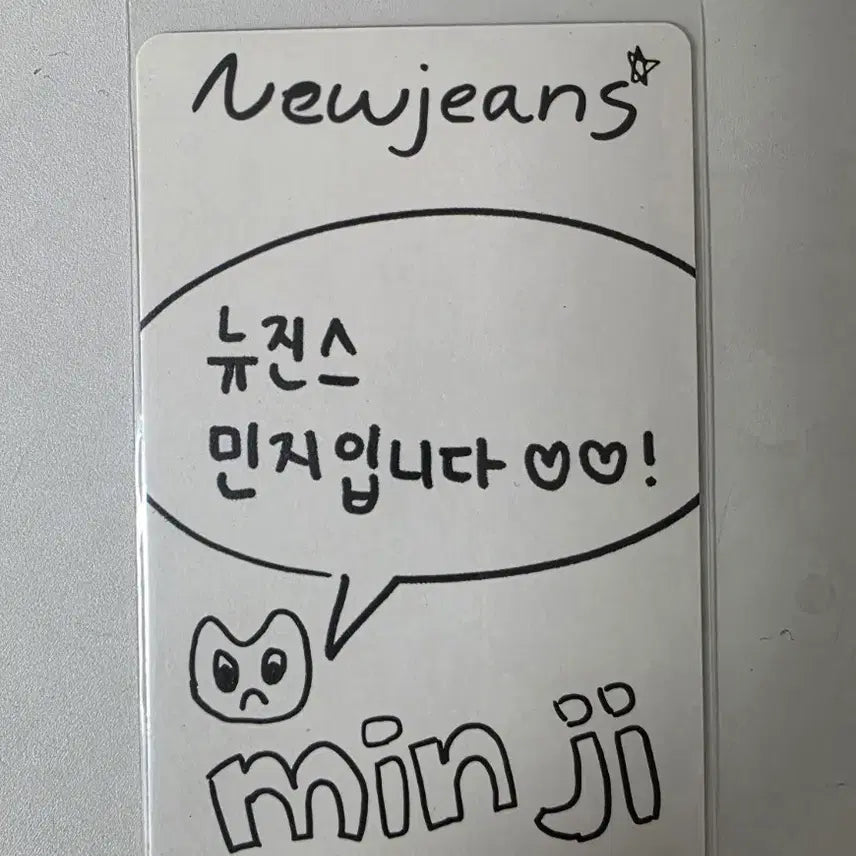 Newjeans
뉴진스
민지입니다 ♡♡!
minji